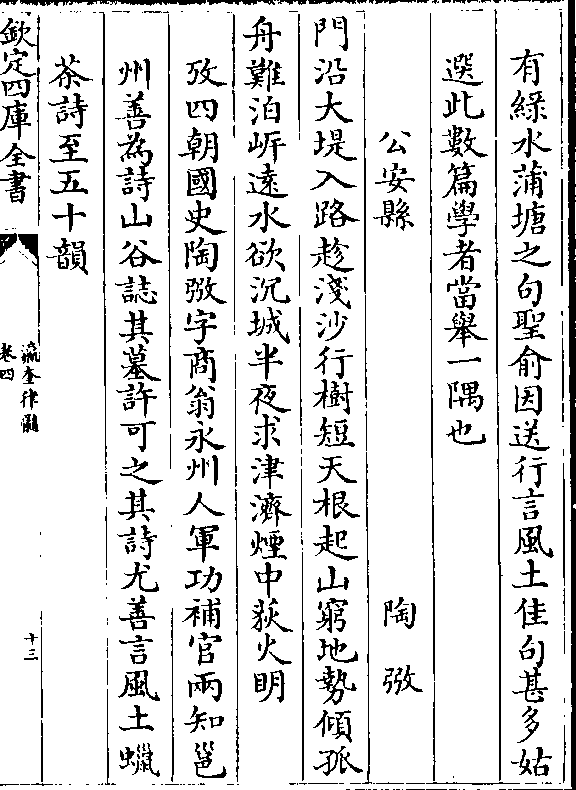 有緑水蒲塘之句聖俞因送行言風土佳句甚多姑
選此數篇學者當舉一隅也
公安縣　陶弼
門沿大堤入路趁淺沙行樹短天根起山窮地勢傾孤
舟難泊㟁遠水欲沉城半夜求津濟煙中荻火明
攷四朝國史陶弼字商翁永州人軍功補官兩知邕
州善為詩山谷誌其墓許可之其詩尤善言風土蠟
茶詩至五十韻
欽定四庫全書
瀛奎律髓
卷四
十三